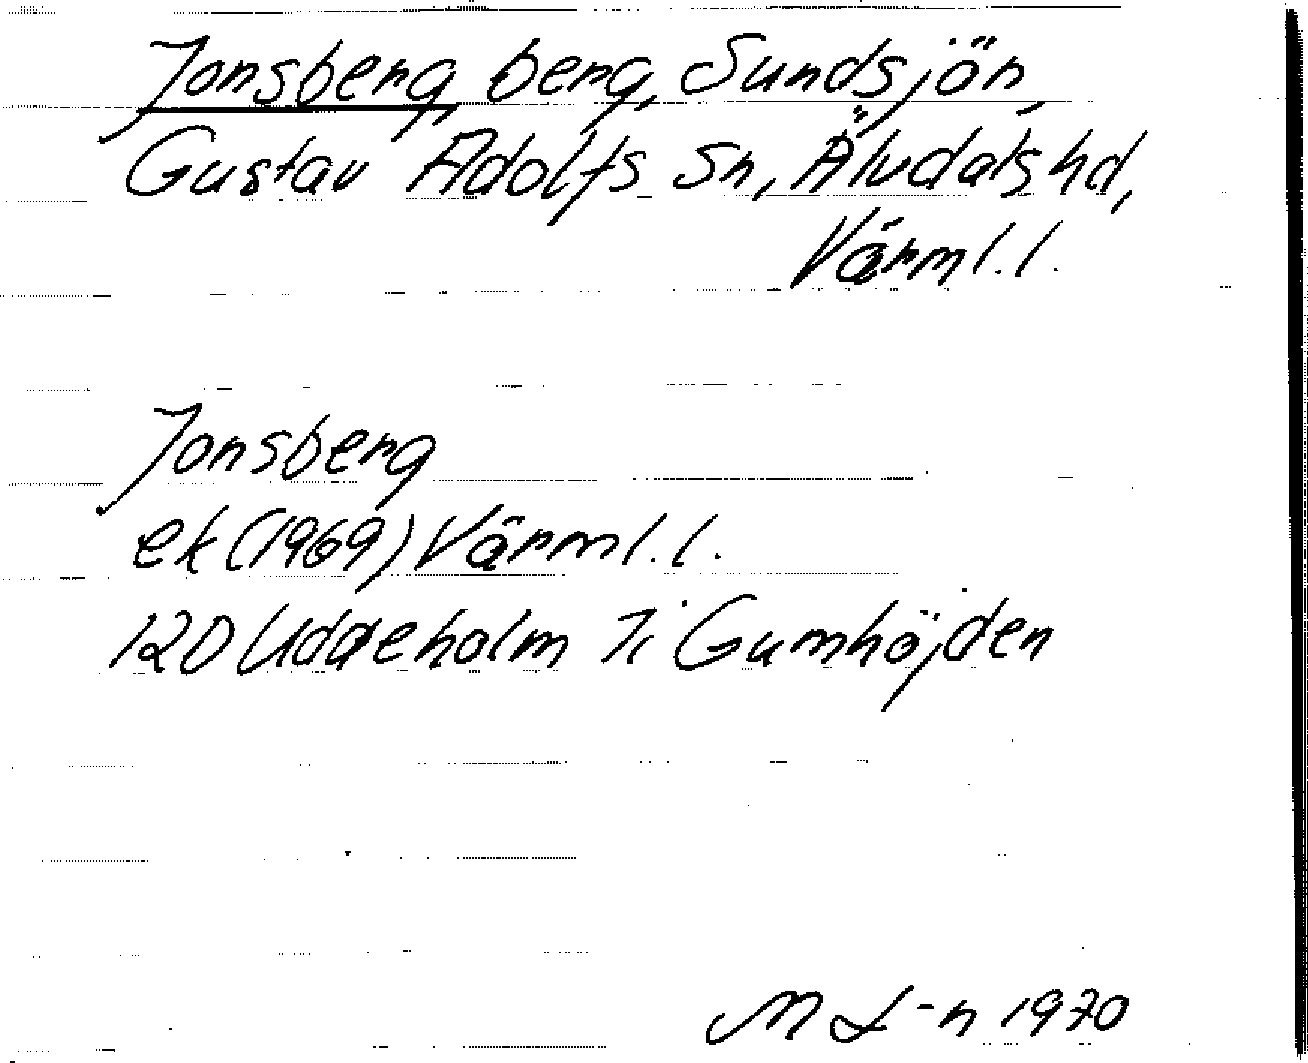 Jonsberg berg, Sundsjön,
Gustav Adolfs Sn, Älvdals hd,
Värml.l.
Jonsberg
ek (1969) Värml.l.
12D Uddeholm 7i Gumhöjden
M L-n 1970